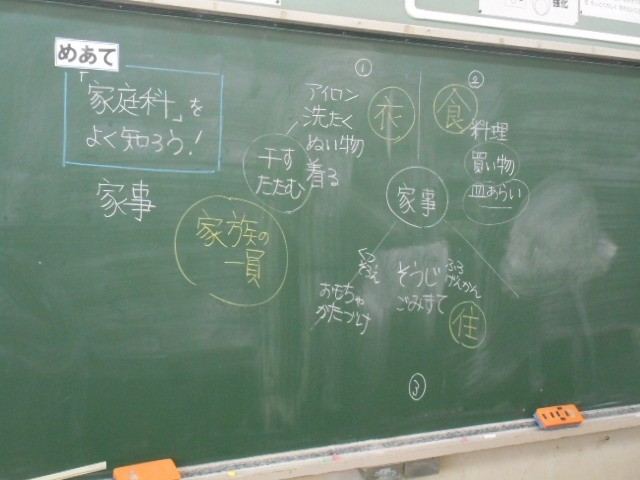 めあて
「家庭科」を
よく知ろう!
家事
家族の
一員
①
アイロン
洗たく
ぬい物
着る
干す
たたむ
衣
②
食
料理
買い物
皿あらい
家事
くつ
そうじ
ごみすて
ふろ
げんかん
おもちゃ
かたづけ
住
③
強化